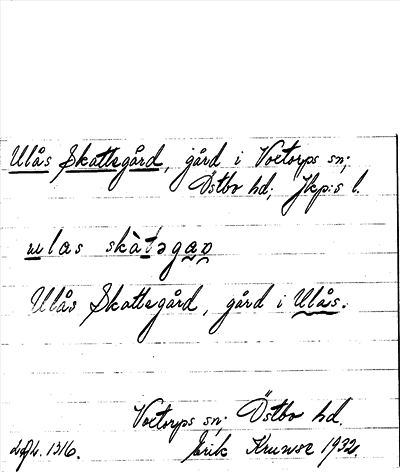 Ulås Skattegård, gård i Voetorps sn;
Östbo hd; Jkp:s l.
ulas skàtəgaɒ
Ulås Skattegård, gård i Ulås.
Voetorps sn; Östbo hd.
Erik Krunse 1932.